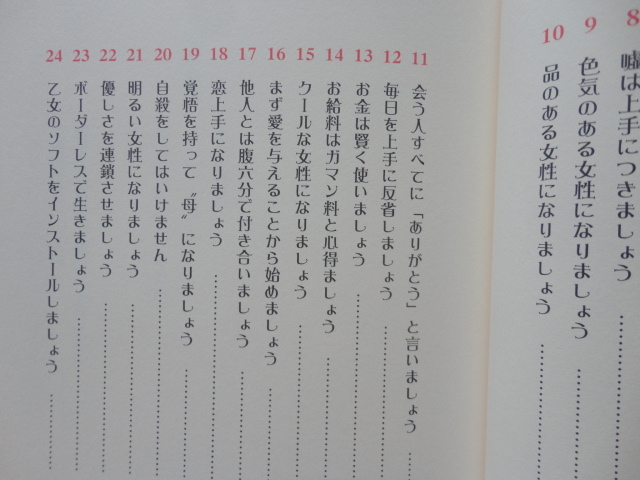 8 嘘は上手につきましょう
9 色気のある女性になりましょう
10 品のある女性になりましょう
11 会う人すべてに「ありがとう」と言いましょう
12 毎日を上手に反省しましょう
13 お金は賢く使いましょう
14 お給料はガマン料と心得ましょう
15 クールな女性になりましょう
16 まず愛を与えることから始めましょう
17 他人とは腹六分で付き合いましょう
18 恋上手になりましょう
19 覚悟を持って〝母〟になりましょう
20 自殺をしてはいけません
21 明るい女性になりましょう
22 優しさを連鎖させましょう
23 ボーダーレスで生きましょう
24 乙女のソフトをインストールしましょう